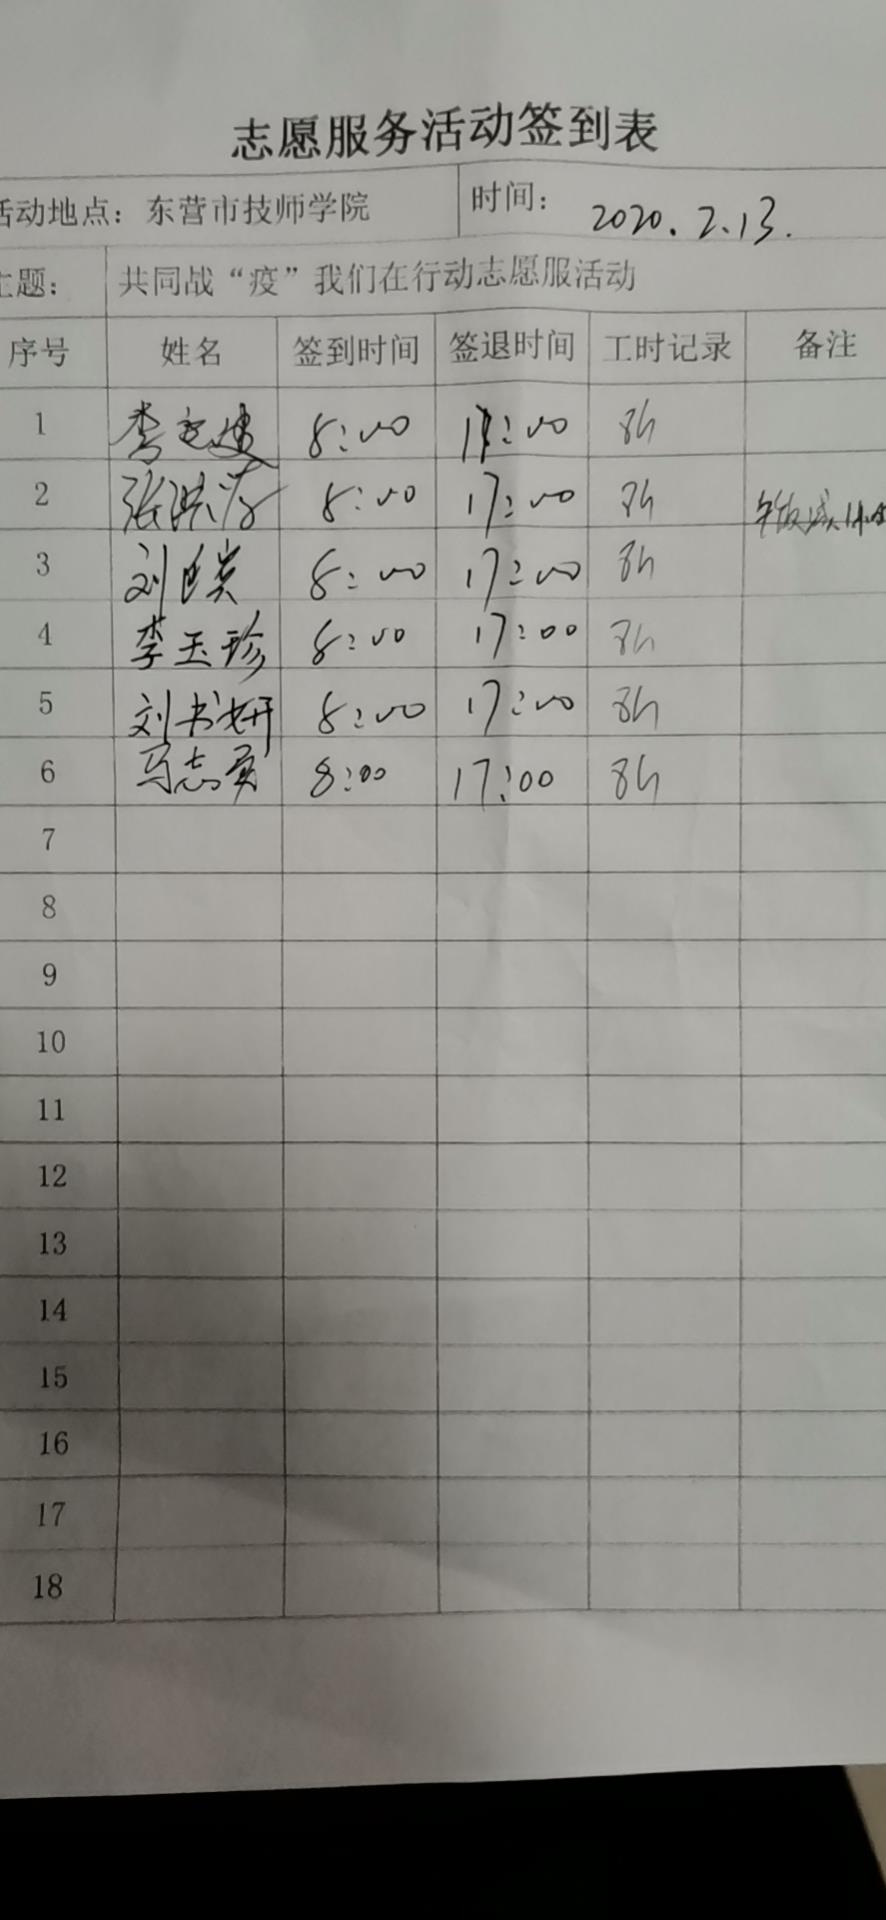 志愿服务活动签到表
活动地点：东营市技师学院 时间： 2020.2.13.
主题： 共同战“疫”我们在行动志愿服活动
序号 姓名 签到时间 签退时间 工时记录 备注
1 8:00 17:00 8h
2 8:00 17:00 8h
3 8:00 17:00 8h
4 李玉珍 8:00 17:00 8h
5 刘书妍 8:00 17:00 8h
6 8:00 17:00 8h
7
8
9
10
11
12
13
14
15
16
17
18